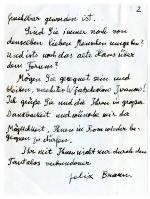 2
fruchtbar geworden ist.
Sind Sie immer noch von
denselben lieben Menschen umgeben?
Und ist noch das alte Haus über
dem Forum?
Mögen Sie gesegnet sein und
bleiben,
Ich grüße Sie und die Ihren in großer
Dankbarkeit und wünsche mir die
Möglichkeit, Ihnen in Rom wieder be-
gegnen zu dürfen.
Ihr mit Ihnen nicht nur durch den
verbundener
Felix Braun